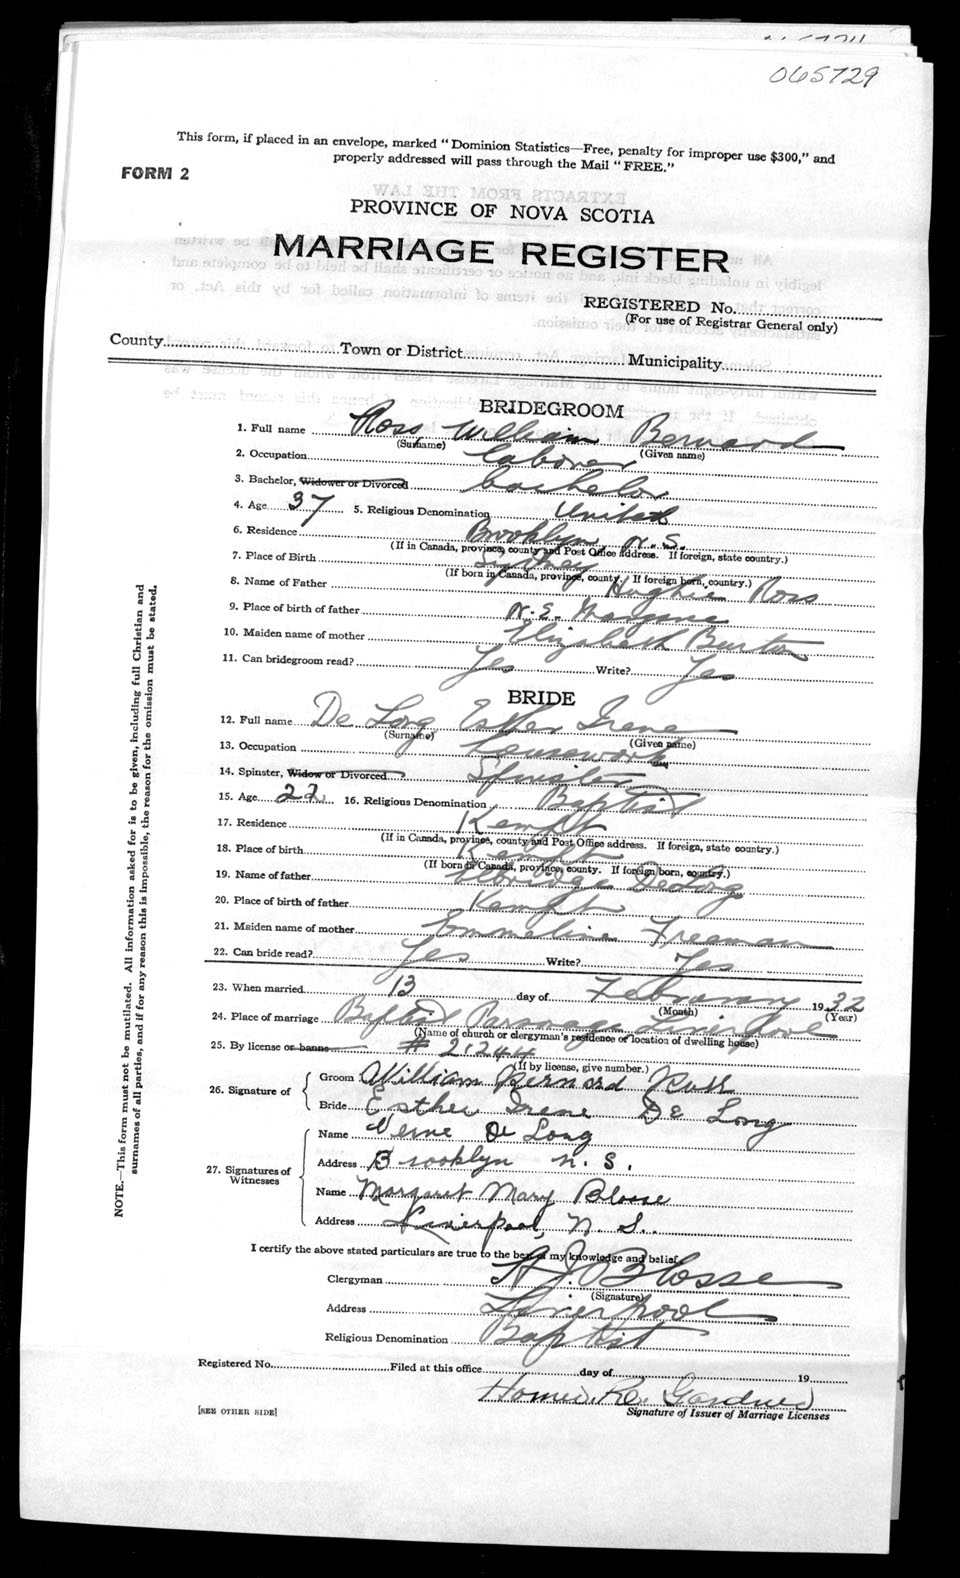 065729
This form, if placed in an envelope, marked "Dominion Statistics—Free, penalty for improper use $300," and
properly addressed will pass through the Mail "FREE."
FORM 2
PROVINCE OF NOVA SCOTIA
MARRIAGE REGISTER
REGISTERED No.
(For use of Registrar General only)
County Town or District Municipality
BRIDEGROOM
1. Full name Ross William Bernard
(Surname) (Given name)
2. Occupation Laborer
3. Bachelor, Widower or Divorced Bachelor
4. Age 37 5. Religious Denomination United
6. Residence Brooklyn N.S.
(If in Canada, province, county and Post Office address. If foreign, state country.)
7. Place of Birth Sydney
(If born in Canada, province, county. If foreign born, country.)
8. Name of Father Hughie Ross
9. Place of birth of father N.E. Margaree
10. Maiden name of mother Elizabeth Burton
11. Can bridegroom read? Yes Write? Yes
BRIDE
12. Full name De Long Esther Irene
(Surname) (Given name)
13. Occupation housework
14. Spinster, Widow or Divorced Spinster
15. Age 22 16. Religious Denomination Baptist
17. Residence Kempt
(If in Canada, province, county and Post Office address. If foreign, state country.)
18. Place of birth Kempt
(If born in Canada, province, county. If foreign born, country.)
19. Name of father DeLong
20. Place of birth of father Kempt
21. Maiden name of mother Emmeline Freeman
22. Can bride read? Yes Write? Yes
23. When married 13 day of February 1932
(Month) (Year)
24. Place of marriage Baptist Parsonage Liverpool
(Name of church or clergyman's residence or location of dwelling house)
25. By license or banns # 21244
(If by license, give number.)
26. Signature of
Groom William Bernard Ross
Bride Esther Irene De Long
27. Signatures of Witnesses
Name Verne De Long
Address Brooklyn N. S.
Name Margaret Mary Blosse
Address Liverpool, N. S.
I certify the above stated particulars are true to the best of my knowledge and belief
Clergyman Blosse
(Signature)
Address Liverpool
Religious Denomination Baptist
Registered No. Filed at this office day of 19
Homer Gardner
[SEE OTHER SIDE] Signature of Issuer of Marriage Licenses
NOTE.—This form must not be mutilated. All information asked for is to be given, including full Christian and
surnames of all parties, and if for any reason this is impossible, the reason for the omission must be stated.